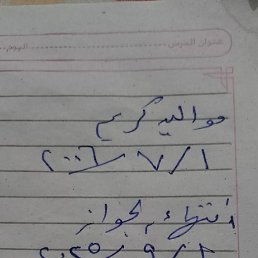 عنوان الدرس اليوم
مواليد كريم
٢٠٠٦/٧/١
انتهاء جواز